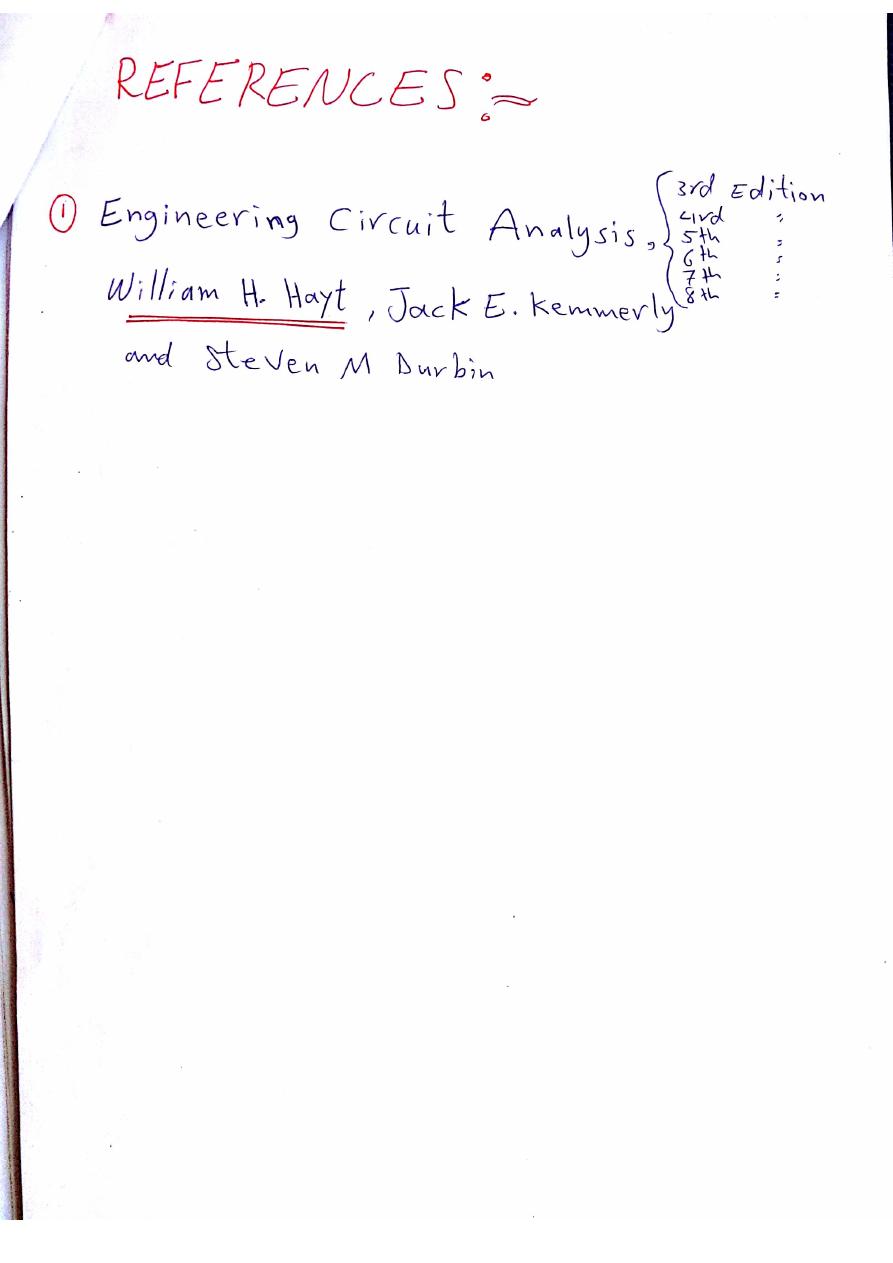 REFERENCES:~
① Engineering Circuit Analysis, { 3rd Edition
4rd "
5th "
6th "
7th "
8th "
William H. Hayt, Jack E. Kemmerly
and Steven M Durbin